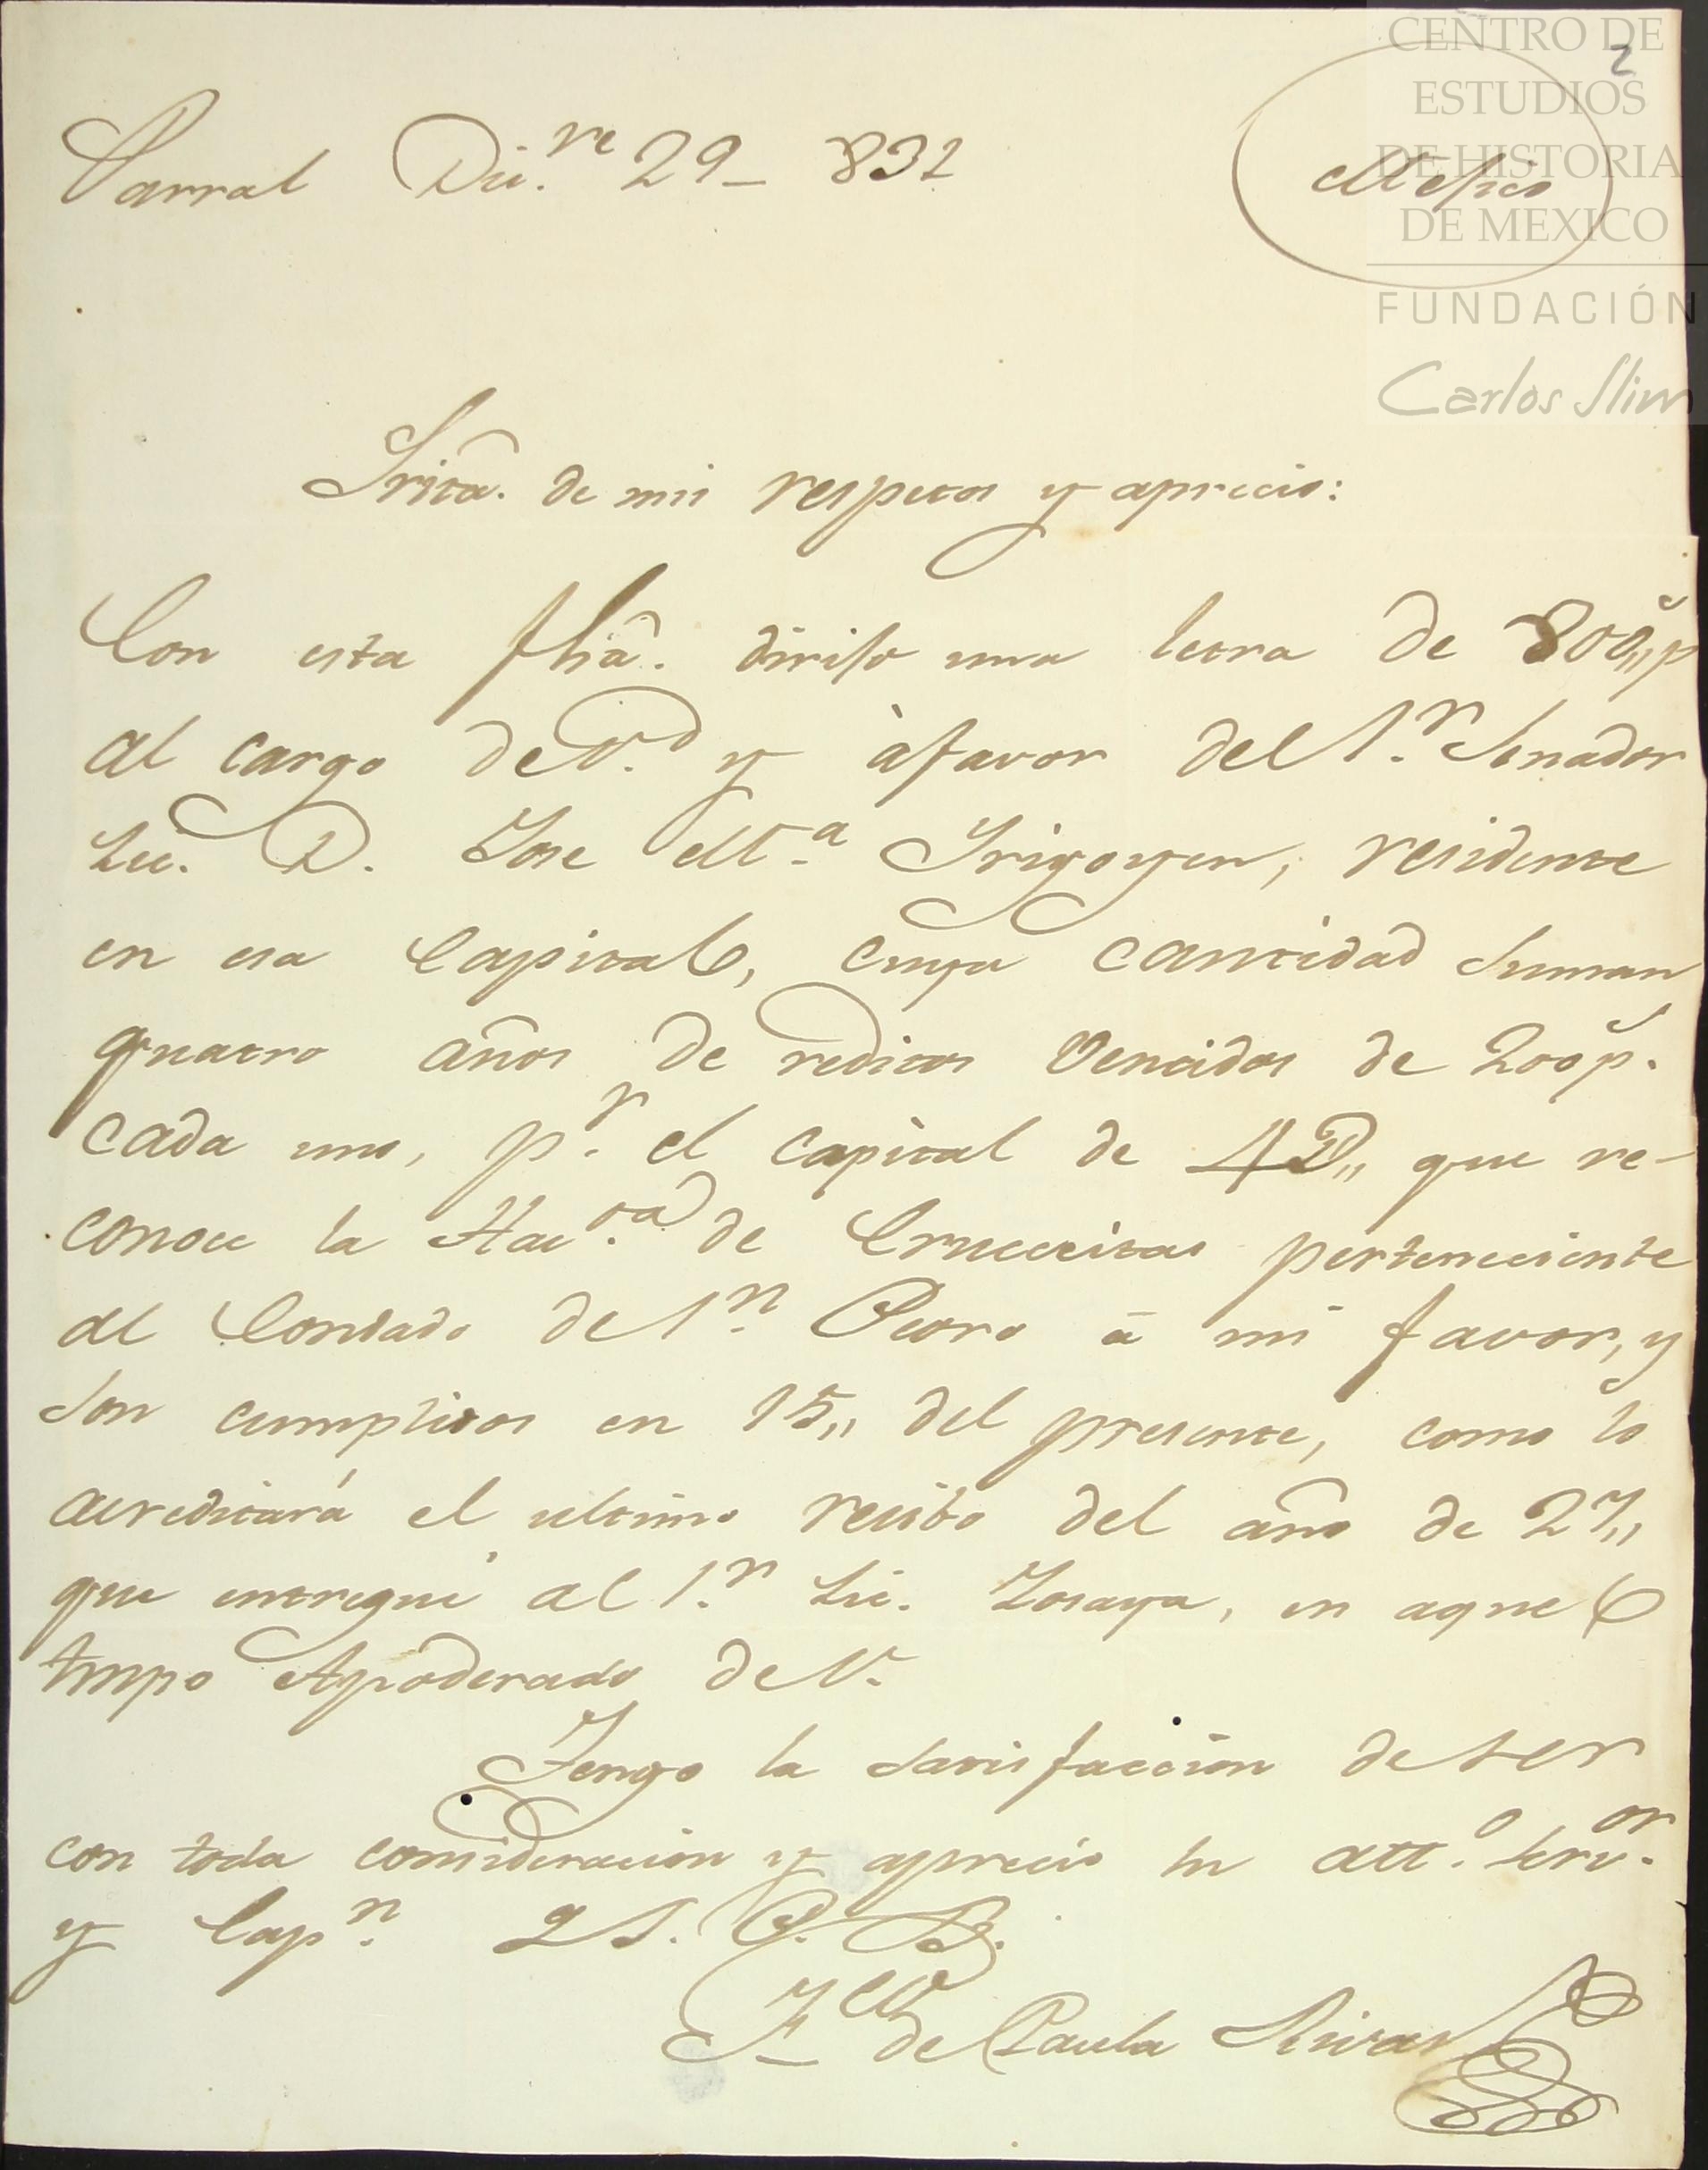 2
CENTRO DE
ESTUDIOS
DE HISTORIA
DE MEXICO
FUNDACIÓN
Carlos Slim
Parral Dic.re 29_ 832
Mejico
Srita. de mis respetos y aprecio:
Con esta fha. dirijo una letra de 800,, p.s
al cargo de V.d y à favor del S.r Senador
Lic. D. Jose M.a Yrigoyen, residente
en esa Capital, cuya cantidad suman
quatro años de reditos vencidos de 200 p.s
cada uno, p.r el capital de 4D,, que re-
conoce la Hac.da de Crucecitas perteneciente
al Condado de S.n Pedro à mi favor, y
son cumplidos en 15,, del presente, como lo
acreditará el ultimo recibo del año de 27,,
que entregué al S.r Lic. Zozaya, en aquel
tmpo Apoderado de V.
Tengo la satisfaccion de ser
con toda consideracion y aprecio su att.o serv.or
y Cap.n Q S. P. B.
F.co de Paula Rivas